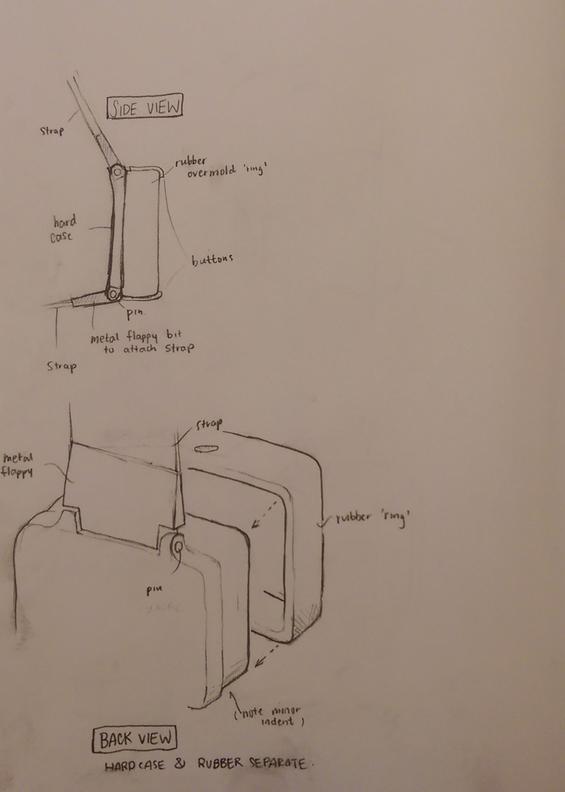 SIDE VIEW
strap
rubber
overmold 'ring'
hard
case
buttons
pin
metal flappy bit
to attach strap
strap
strap
metal
flappy
rubber 'ring'
pin
(note minor
indent)
BACK VIEW
HARD CASE & RUBBER SEPARATE.